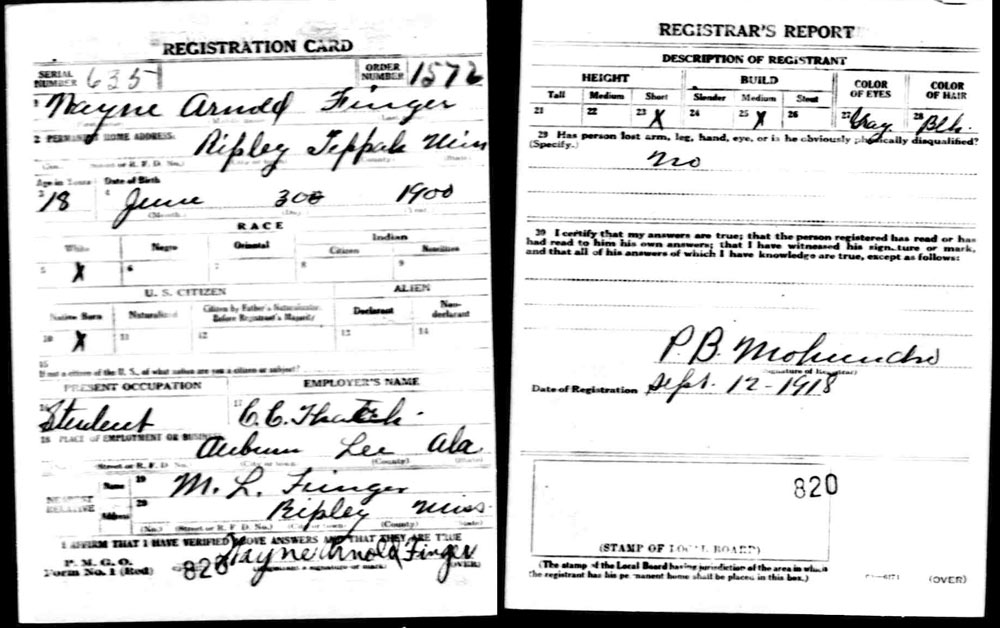 REGISTRATION CARD
SERIAL NUMBER 635 ORDER NUMBER 1572
1 Wayne Arnold Finger
2 PERMANENT HOME ADDRESS:
Ripley Tippah Miss
(No.) (Street or R. F. D. No.) (City or town) (State)
Age in Years Date of Birth
3 18 4 June 30 1900
(Month) (Day) (Year)
RACE
White Negro Oriental Indian
Citizen Noncitizen
5 X 6 7 8 9
U. S. CITIZEN ALIEN
Native Born Naturalized Citizen by Father's Naturalization Before Registrant's Majority Declarant Non-declarant
10 X 11 12 13 14
15
If not a citizen of the U. S., of what nation are you a citizen or subject?
PRESENT OCCUPATION EMPLOYER'S NAME
16 Student 17 C. C. Thach
18 PLACE OF EMPLOYMENT OR BUSINESS
Auburn Lee Ala
(Street or R. F. D. No.) (City or town) (County) (State)
NEAREST RELATIVE
Name 19 M. L. Finger
Address 20 Ripley Miss.
(No.) (Street or R. F. D. No.) (City or town) (County) (State)
I AFFIRM THAT I HAVE VERIFIED ABOVE ANSWERS AND THAT THEY ARE TRUE
P. M. G. O.
Form No. 1 (Red) 820 Wayne Arnold Finger
(Registrant's signature or mark) (OVER)
REGISTRAR'S REPORT
DESCRIPTION OF REGISTRANT
HEIGHT BUILD COLOR OF EYES COLOR OF HAIR
Tall Medium Short Slender Medium Stout
21 22 23 X 24 25 X 26 27 Gray 28 Blk.
29 Has person lost arm, leg, hand, eye, or is he obviously physically disqualified?
(Specify.)
no
30 I certify that my answers are true; that the person registered has read or has
had read to him his own answers; that I have witnessed his signature or mark,
and that all of his answers of which I have knowledge are true, except as follows:
P. B. Mohundro
(Signature of Registrar)
Date of Registration Sept. 12-1918
820
(STAMP OF LOCAL BOARD)
(The stamp of the Local Board having jurisdiction of the area in which
the registrant has his permanent home shall be placed in this box.)
(OVER)